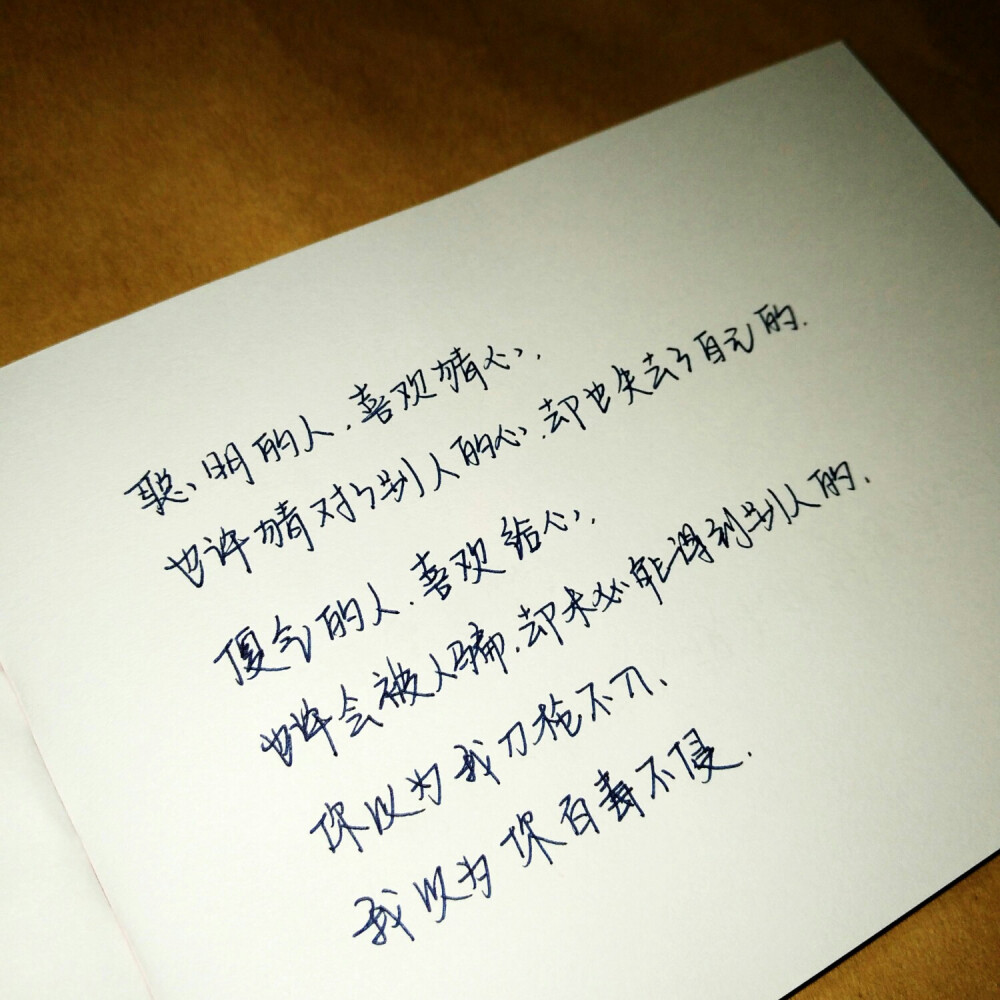 聪明的人.喜欢猜心.
也许猜对了别人的心.却也失去了自己的.
傻气的人.喜欢给心.
也许会被人骗.却未必能得到别人的.
你以为我刀枪不入.
我以为你百毒不侵.